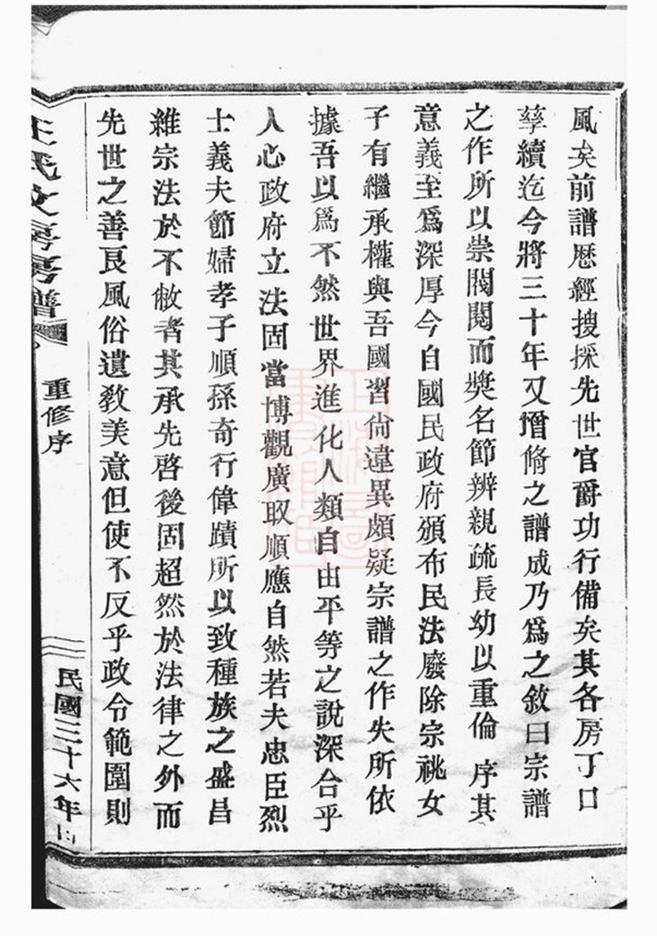 風矣前譜歷經搜採先世官爵功行備矣其各房丁口
孳續迄今將三十年又增脩之譜成乃爲之敘曰宗譜
之作所以崇閥閱而奬名節辨親疏長幼以重倫 序其
意義至爲深厚今自國民政府頒布民法廢除宗祧女
子有繼承權與吾國習尙違異頗疑宗譜之作失所依
據吾以爲不然世界進化人類自由平等之說深合乎
人心政府立法固當博觀廣取順應自然若夫忠臣烈
士義夫節婦孝子順孫奇行偉蹟所以致種族之盛昌
維宗法於不敝者其承先啓後固超然於法律之外而
先世之善良風俗遺敎美意但使不反乎政令範圍則
王氏文房房譜
重修序
民國三十六年